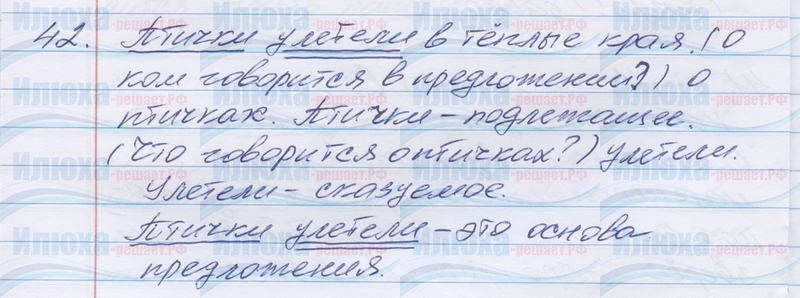 42. Птички улетели в тёплые края. (О
ком говорится в предложении?) О
птичках. Птички - подлежащее.
(Что говорится о птичках?) улетели.
Улетели - сказуемое.
Птички улетели - это основа
предложения.
Илюха-решает.рф